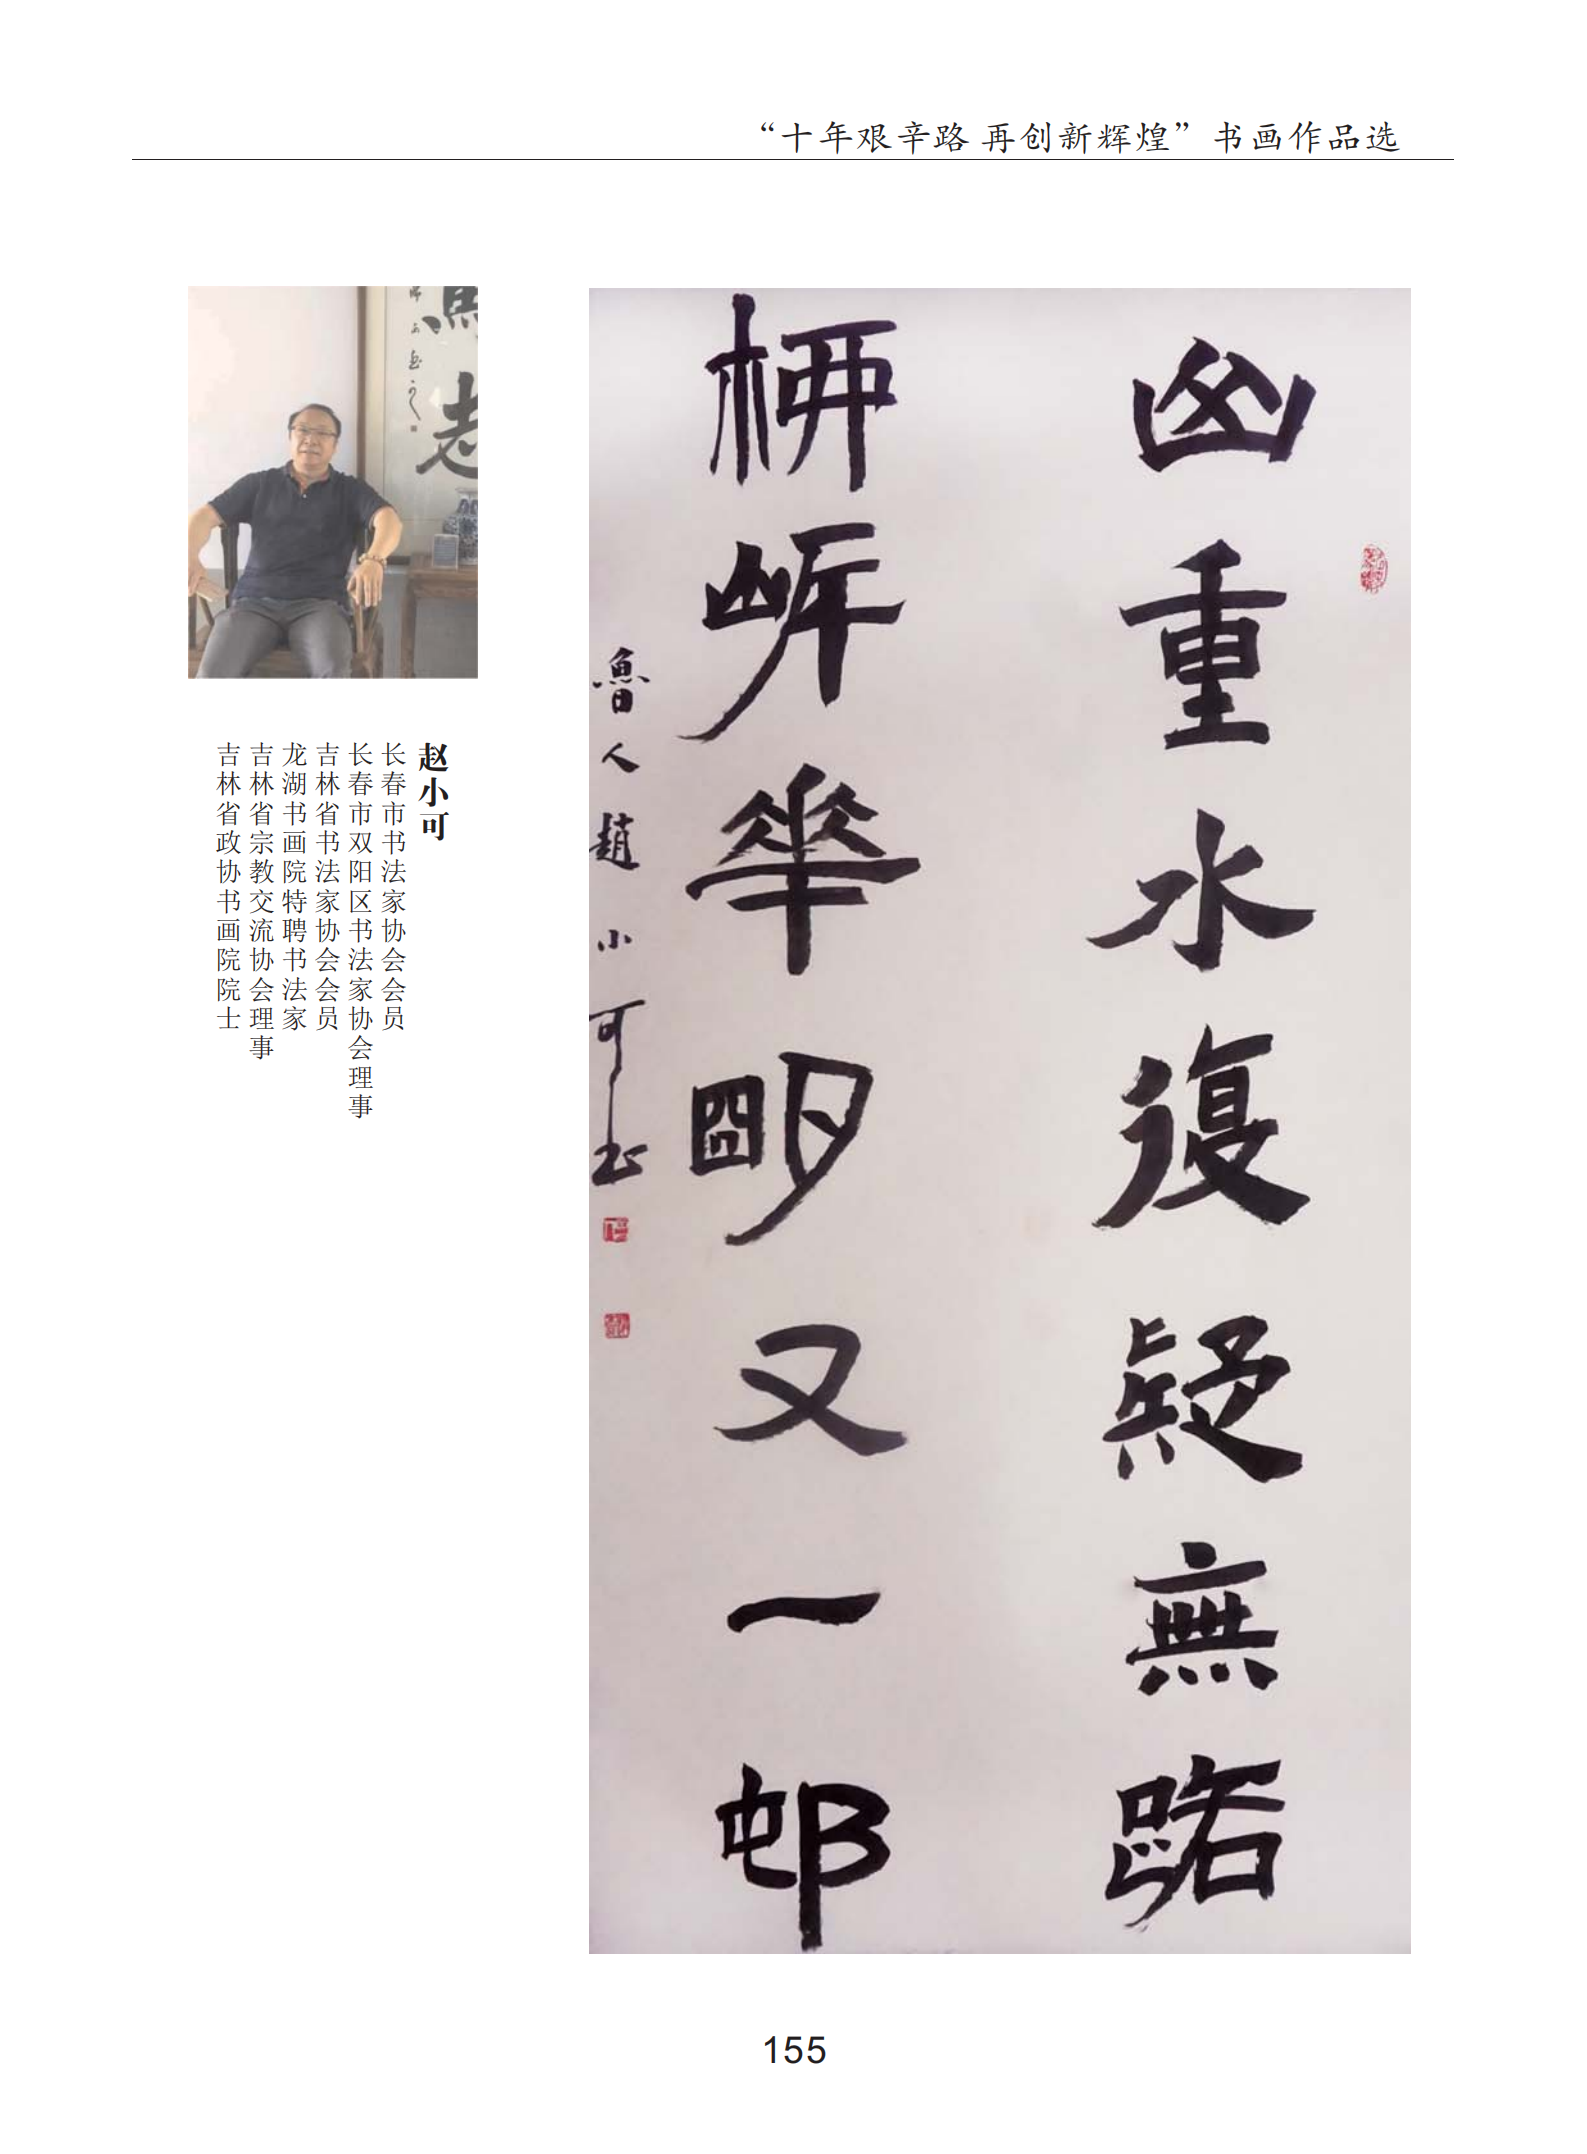 “十年艰辛路 再创新辉煌”书画作品选
赵小可
长春市书法家协会会员
长春市双阳区书法家协会理事
吉林省书法家协会会员
龙湖书画院特聘书法家
吉林省宗教交流协会理事
吉林省政协书画院院士
山重水復疑無路
柳岸華朙又一邨
魯人趙小可书
155